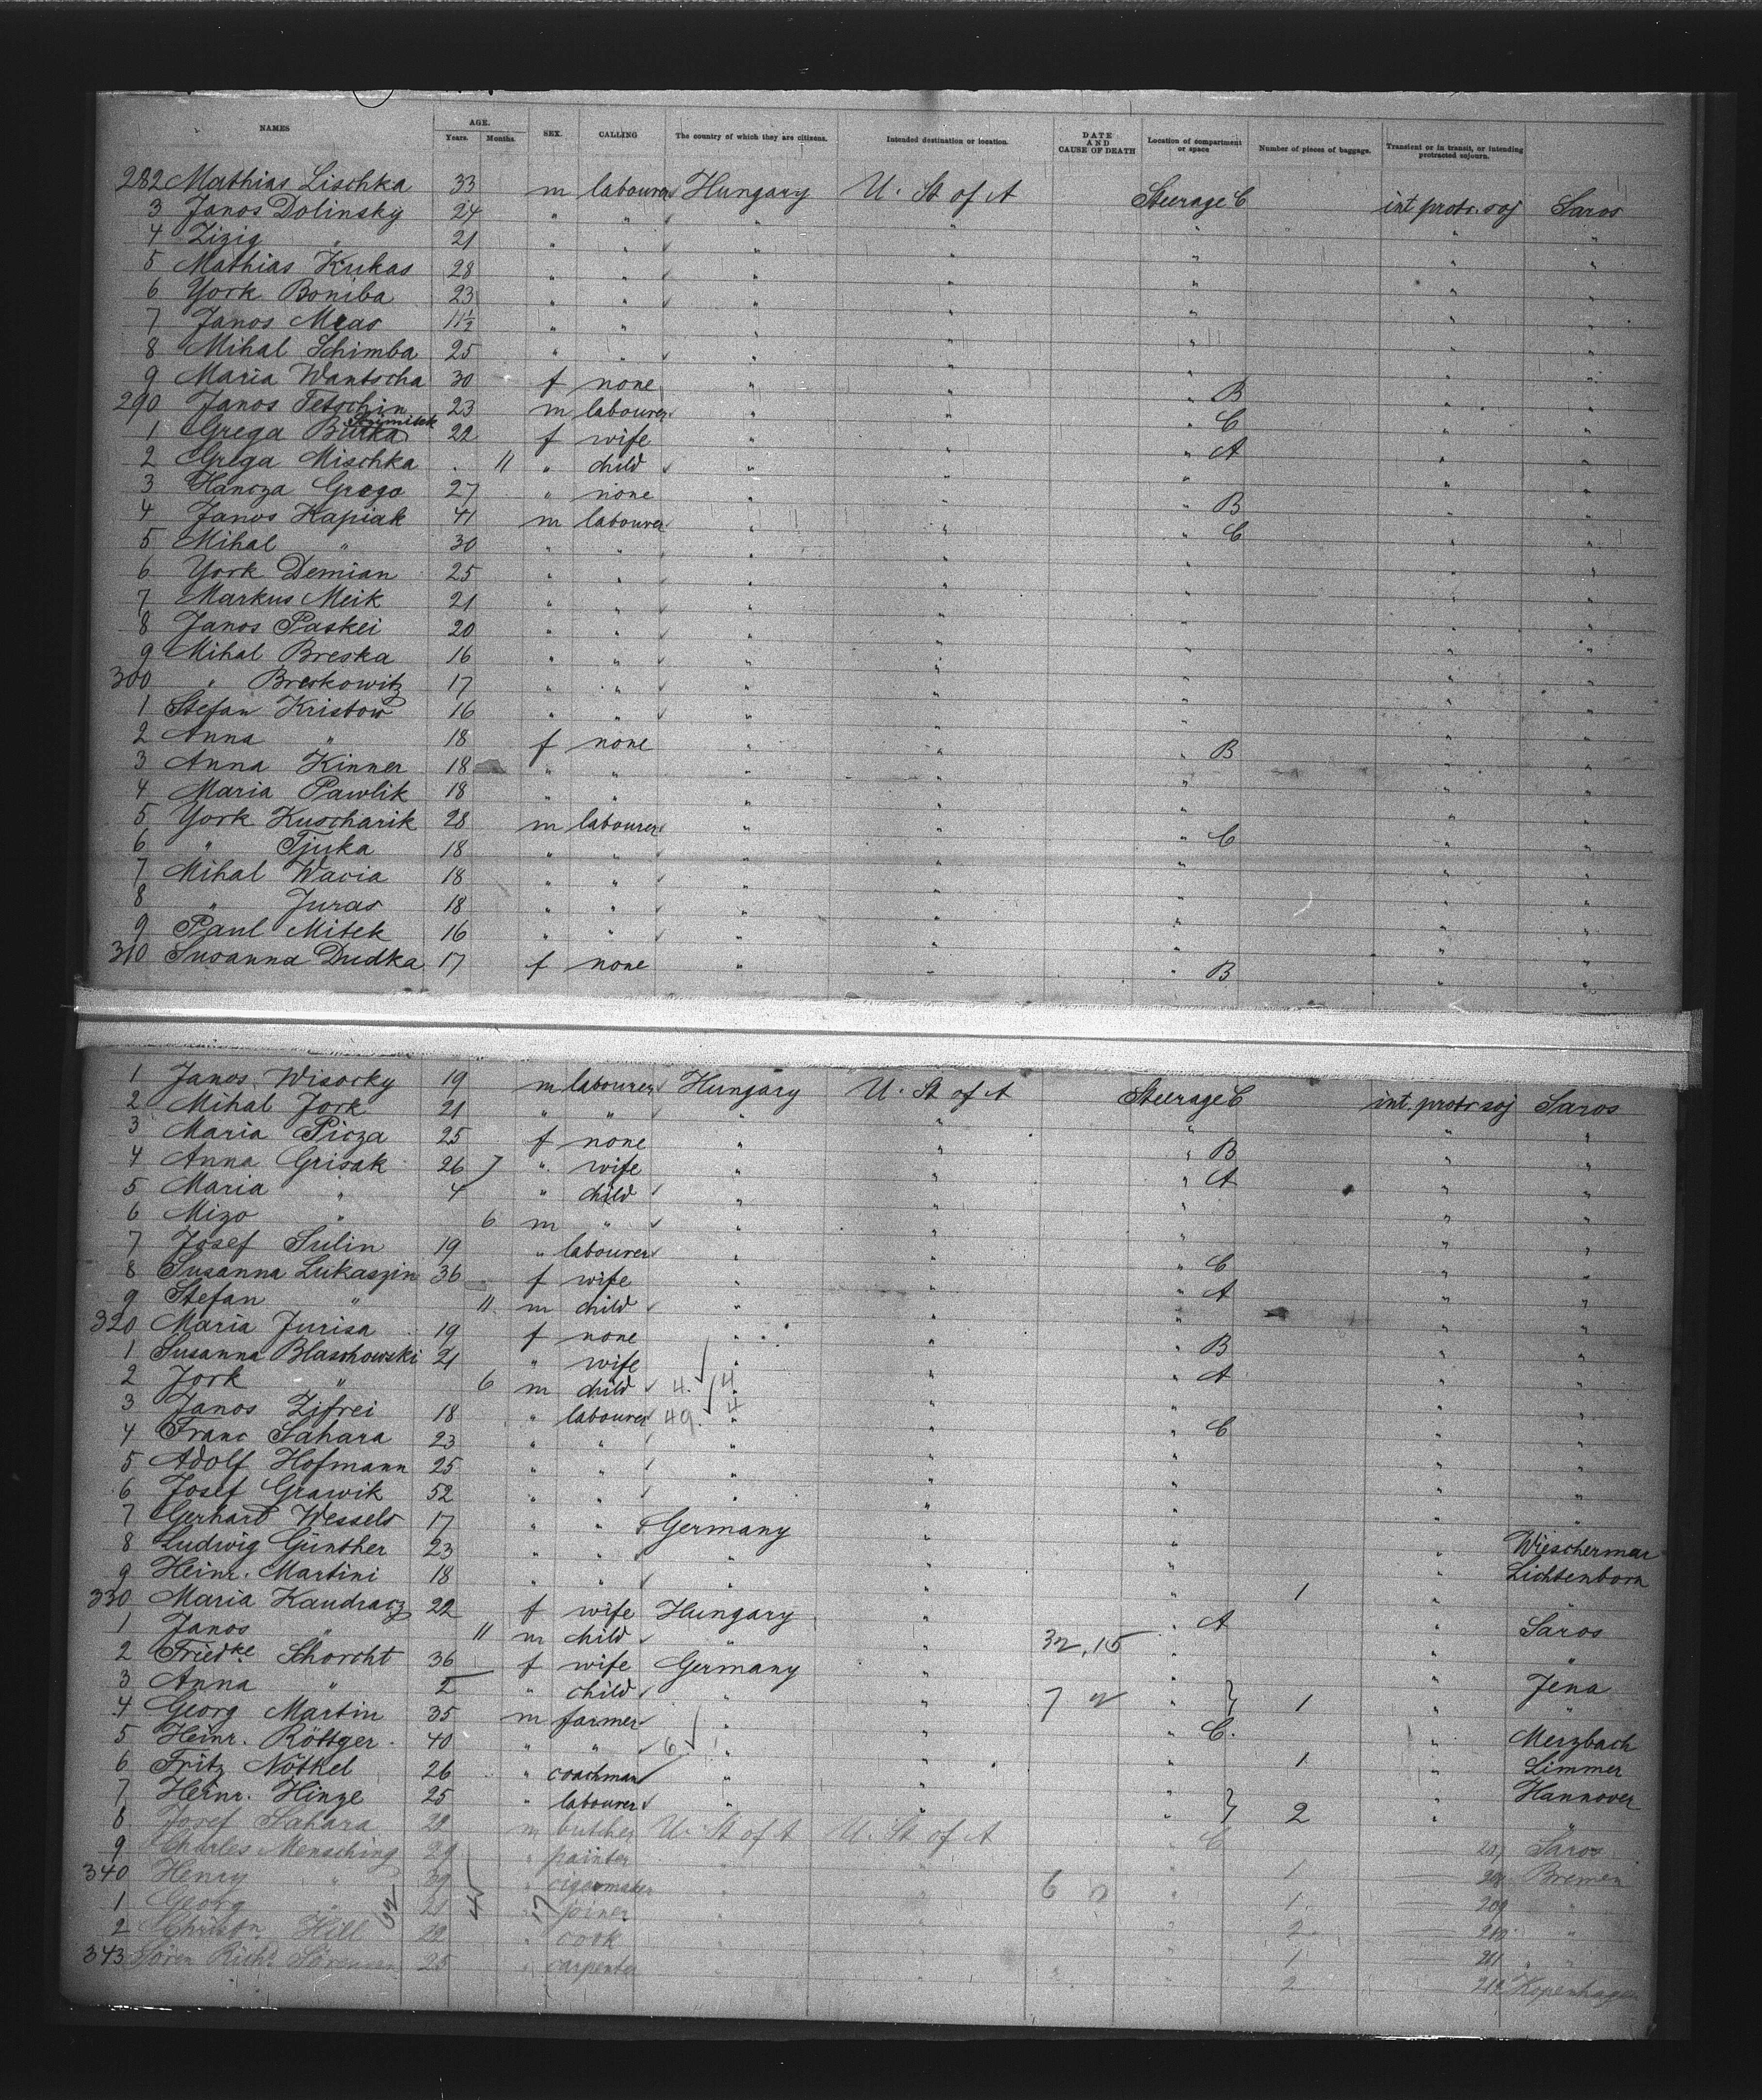 NAMES AGE. Years. Months. SEX. CALLING The country of which they are citizens. Intended destination or location. DATE AND CAUSE OF DEATH Location of compartment or space Number of pieces of baggage. Transient or in transit, or intending protracted sojourn.
282 Mathias Lischka 33 m labourer Hungary U. St of A Steerage C int protr. soj Saros
3 Janos Dolinsky 24 " " " " " " "
4 Zizig " 21 " " " " " " "
5 Mathias Kukas 28 " " " " " " "
6 York Boniba 23 " " " " " " "
7 Janos Meas 11½ " " " " " " "
8 Mihal Schimba 25 " " " " " " "
9 Maria Wantscha 30 f none " " " B " "
290 Janos Tetschin 23 m labourer " " " C " "
1 Grega Burka 22 f wife " " " A " "
2 Grega Mischka 11 " child " " " " "
3 Hancza Grego 27 " none " " " B " "
4 Janos Hapiak 41 m labourer " " " C " "
5 Mihal " 30 " " " " " " "
6 York Demian 25 " " " " " " "
7 Markus Meik 21 " " " " " " "
8 Janos Paskei 20 " " " " " " "
9 Mihal Breska 16 " " " " " " "
300 " Breskowitz 17 " " " " " " "
1 Stefan Kristow 16 " " " " " " "
2 Anna " 18 f none " " " B " "
3 Anna Kinner 18 " " " " " " "
4 Maria Pawlik 18 " " " " " " "
5 York Kuscharik 28 m labourer " " " C " "
6 " Tjuka 18 " " " " " " "
7 Mihal Wacia 18 " " " " " " "
8 " Juras 18 " " " " " " "
9 Paul Mitek 16 " " " " " " "
310 Susanna Dudka 17 f none " " " B " "
1 Janos Wisocky 19 m labourer Hungary U. St of A Steerage C int. protr soj Saros
2 Mihal Jork 21 " " " " " " "
3 Maria Picza 25 f none " " " B " "
4 Anna Grisak 26 " wife " " " A " "
5 Maria " 4 " child " " " " "
6 Mizo " 6 m " " " " " "
7 Josef Sulin 19 " labourer " " " C " "
8 Susanna Lukaszin 36 f wife " " " A " "
9 Stefan " 11 m child " " " " "
320 Maria Jurisa 19 f none " " " B " "
1 Susanna Blaschowski 21 " wife " " " A " "
2 Jork " 6 m child 4. 4 " " " " "
3 Janos Zifrei 18 " labourer 49. 4 " " " C " "
4 Franc Sahara 23 " " " " " " "
5 Adolf Hofmann 25 " " " " " " "
6 Josef Grawik 52 " " " " " " "
7 Gerhard Wessels 17 " " Germany " " " Wieschermar
8 Ludwig Günther 23 " " " " " " Lichtenborn
9 Heinr. Martini 18 " " " " " 1 " "
330 Maria Kaudracz 22 f wife Hungary " " A " Saros
1 Janos " 11 m child " " 32,15 " " "
2 Friedke Schorcht 36 f wife Germany " " " Jena
3 Anna " 2 " child " " 7 " 1 " "
4 Georg Martin 35 m farmer " " " C. " Merzbach
5 Heinr. Röttger 40 " " 6 " " " 1 " Limmer
6 Fritz Nöthel 26 " coachman " " " " Hannover
7 Heinr. Hinze 25 " labourer " " " 2 " "
8 Josef Sahara 22 m butcher U. St of A U. St of A " C Saros
9 Charles Mensching 29 " painter " " " 1 Bremen
340 Henry " 39 " cigarmaker " " 6 " 1 209 "
1 Georg " " joiner " " " 2 210 "
2 Hill 22 " cook " " " 1 211 "
343 Sören Richd Sörensen 25 " carpenter " " " 2 212 Kopenhagen